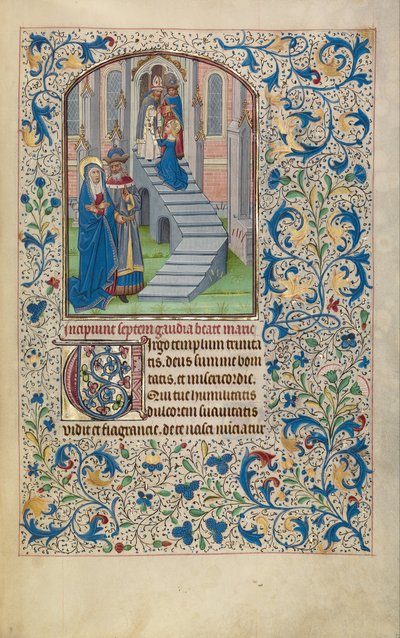 Incipiunt septem gaudia beate marie
Virgo templum trinita
tis. deus summe boni
tatis. et misericordie.
Qui tue humilitatis
dulcorem suauitatis
vidit et flagrancie. de te nasci niciatur